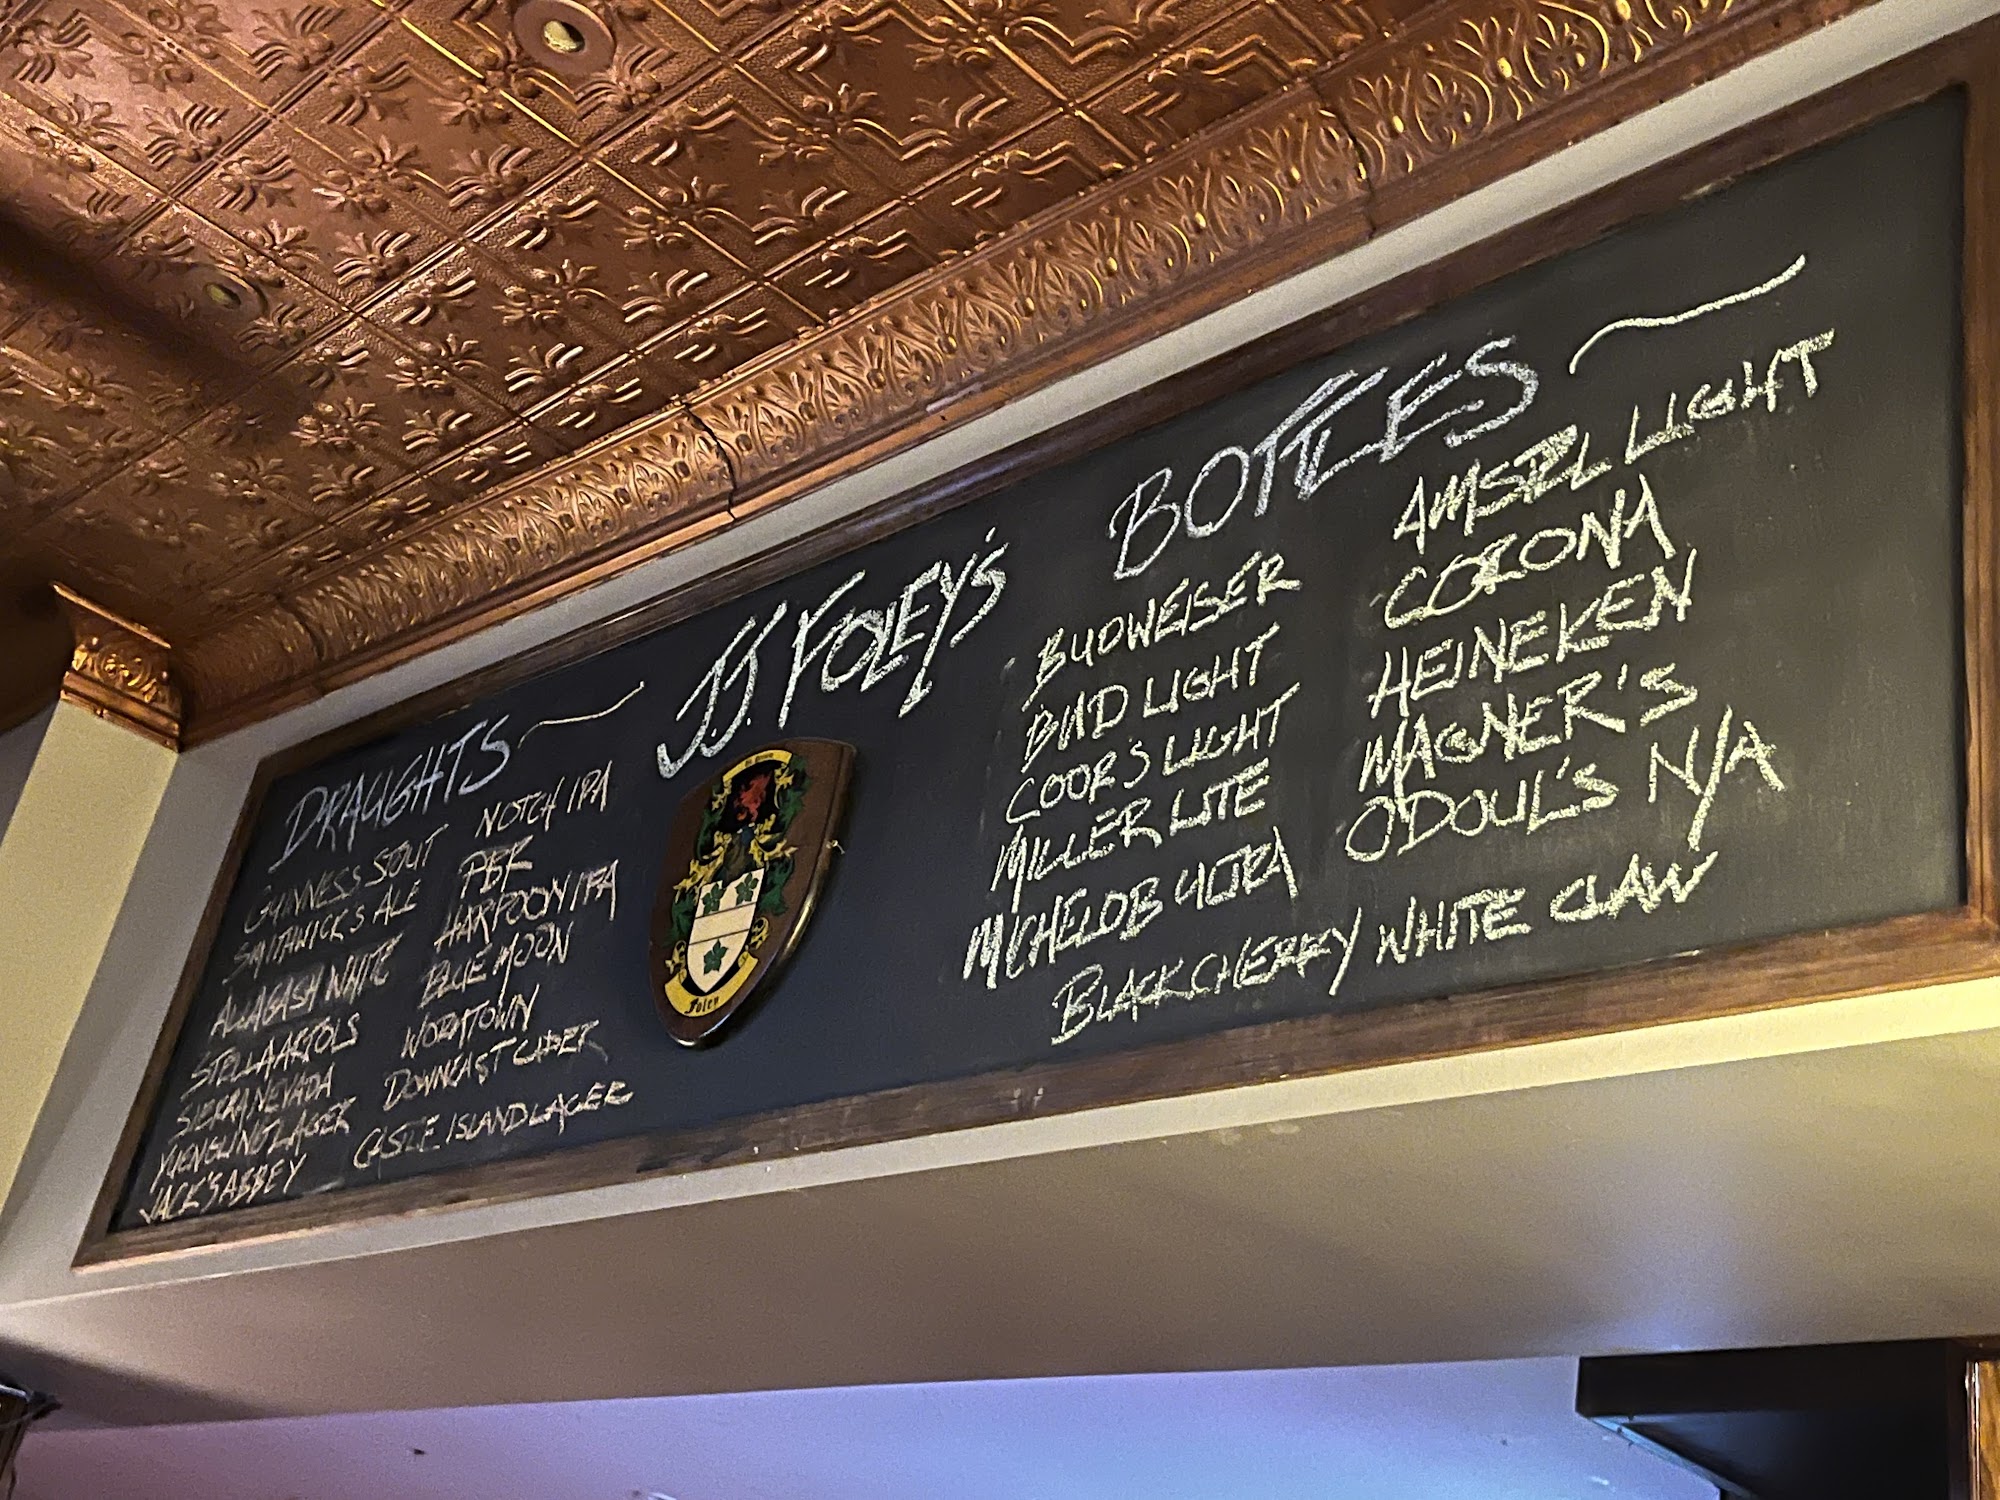 DRAUGHTS
GUINNESS STOUT
SMITHWICK'S ALE
ALLAGASH WHITE
STELLA ARTOIS
SIERRA NEVADA
YUENGLING LAGER
JACK'S ABBEY
NOTCH IPA
PBR
HARPOON IPA
BLUE MOON
WORMTOWN
DOWNEAST CIDER
CASTLE ISLAND LAGER
J.J. FOLEY'S
Foley
BOTTLES
BUDWEISER
BUD LIGHT
COOR'S LIGHT
MILLER LITE
MICHELOB ULTRA
AMSTEL LIGHT
CORONA
HEINEKEN
MAGNER'S
O'DOUL'S N/A
BLACK CHERRY WHITE CLAW